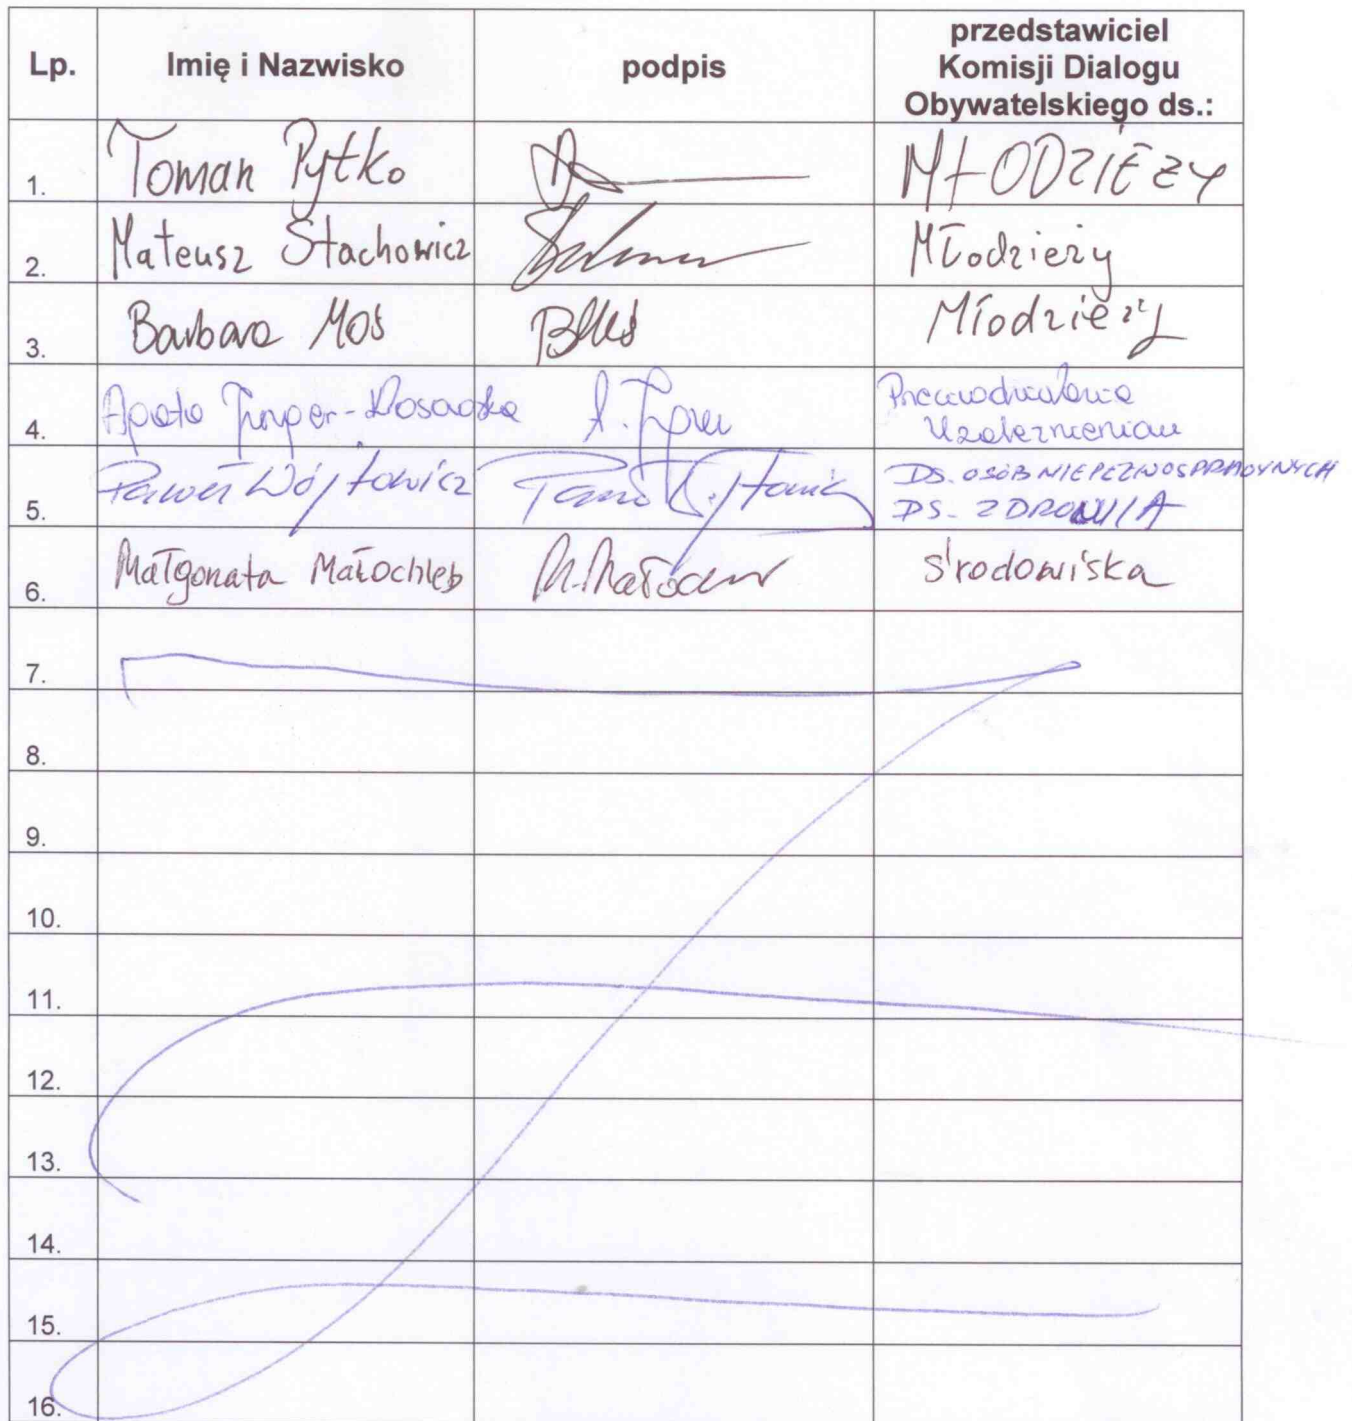 Lp. Imię i Nazwisko podpis przedstawiciel
Komisji Dialogu
Obywatelskiego ds.:
1. Toman Pytko MŁODZIEŻY
2. Mateusz Stachowicz Młodzieży
3. Barbara Moś BMoś Młodzieży
4. Przeciwdziałania
Uzależnieniom
5. Paweł Wójtowicz Paweł Wójtowicz DS. OSÓB NIEPEŁNOSPRAWNYCH
DS. ZDROWIA
6. Małgorzata Małochleb M. Małochleb środowiska
7.
8.
9.
10.
11.
12.
13.
14.
15.
16.